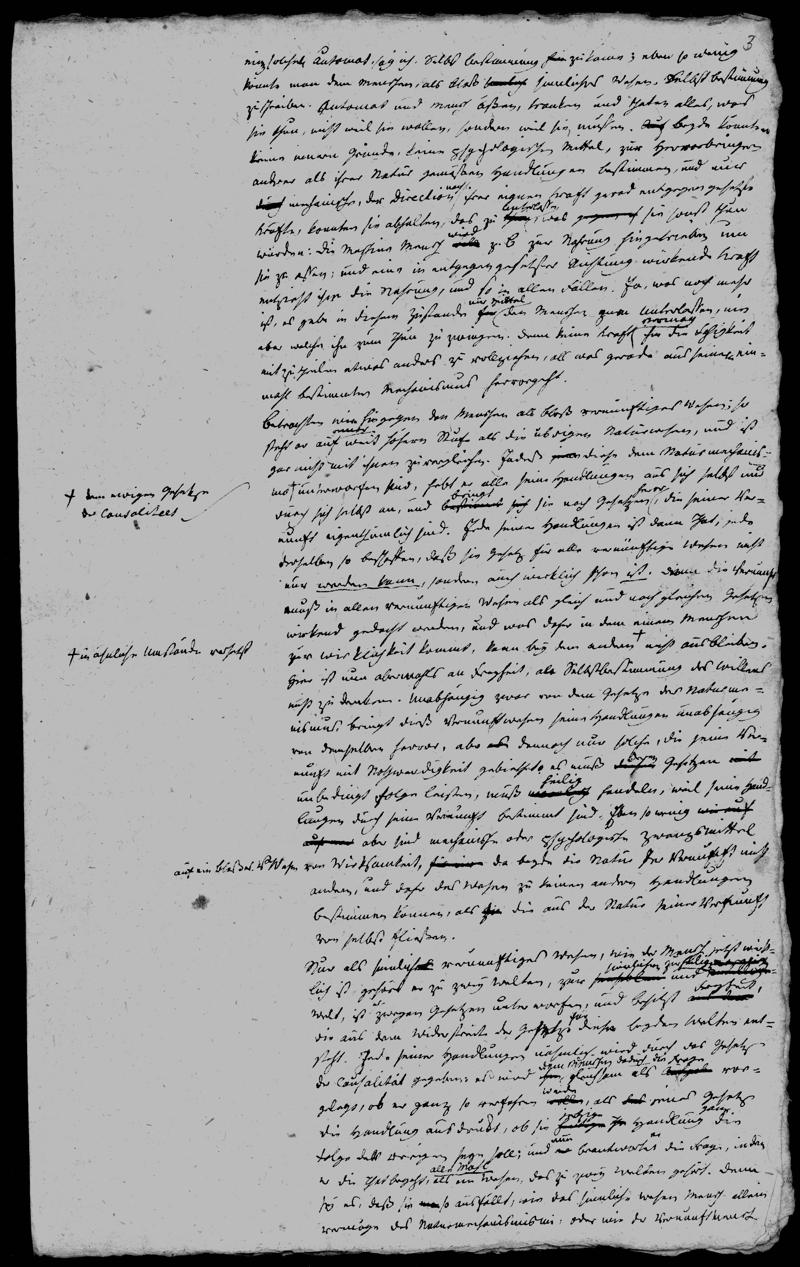 3
Automat, sag ich, Selbstbestimmung zukäme; eben so wenig
könnte man dem Menschen, als bloß sinnliches Wesen, Selbstbestimmung
zuschreiben. Automat und Mensch äßen, tranken und thaten alles, was
sie thun, nicht weil sie wollen, sondern weil sie müssen. Auch beyde könnten
keine innern Gründe, keine psychologischen Mittel, zur Hervorbringung
anderer als ihrer Natur gemäßen Handlungen bestimmen, und nur
mechanische, der Direction ihrer eignen Kraft gerad entgegen gesetzte
Kräfte, könnten sie abhalten, das zu unterlassen, was sie sonst thun
würden: die Maschine Mensch wird z. B. zur Nahrung hingetrieben um
sie zu essen; und eine in entgegengesetzter Richtung wirkende Kraft
entzieht ihr die Nahrung, und so in allen Fällen. Ja, was noch mehr
ist, es gebe in diesem Zustande nur Mittel den Menschen zum Unterlassen, nie
aber welche ihn zum Thun zu zwingen. Denn keine Kraft vermag ihr die Fähigkeit
mitzutheilen etwas anders zu vollziehen, als was gerade aus seinem ein=
mahl bestimmten Mechanismus hervorgeht.
Betrachten wir hingegen den Menschen als bloß vernünftiges Wesen; so
steht er auf einer weit höhern Stufe als die übrigen Naturwesen, und ist
gar nicht mit ihnen zu vergleichen. Indeß diese dem Naturmechanis=
mus † unterworfen sind, hebt er alle seine Handlungen aus sich selbst und
† dem ewigen Gesetze
der Causalitaet
durch sich selbst an, und bringt sie nach Gesetzen hervor, die seiner Ver=
nunft eigenthümlich sind. Jede seiner Handlungen ist denn That, jede
derselben so beschaffen, daß sie Gesetz für alle vernünftige Wesen nicht
nur werden kann, sondern auch wirklich schon ist. Denn die Vernunft
muß in allen vernünftigen Wesen als gleich und nach gleichen Gesetzen
wirkend gedacht werden, und was daher in dem einen Menschen
zur Wirklichkeit kommt, kann bey dem andern † nicht ausbleiben.
† in ähnliche Umstände versetzt
Hier ist nun abermahls an Freyheit, als Selbstbestimmung des Willens
nicht zu denken. Unabhängig zwar von dem Gesetze des Naturme=
nismus, bringt dieß Vernunftwesen seine Handlungen unabhängig
von demselben hervor, aber dennoch nur solche, die seine Ver=
nunft mit Nothwendigkeit gebiehtet; es muß ihren Gesetzen
unbedingt Folge leisten, muß heilig handeln, weil seine Hand=
lungen durch seine Vernunft bestimmt sind. Eben so wenig
aber sind mechanische oder psychologische Zwangsmittel
auf ein bloßes V. Wesen von Wirksamkeit, da beyde die Natur der Vernunft nicht
ändern, und daher das Wesen zu keinen andern Handlungen
bestimmen können, als die aus der Natur seiner Vernunft
von selbst fließen.
Nur als sinnlich vernünftiges Wesen, wie der Mensch jetzt wirk=
lich ist, gehört er zu zwey Welten, zur sinnlichen und
Welt, ist zweyen Gesetzen unterworfen, und besitzt Freyheit,
die aus dem Widerstreite der Gesetze dieser beyden Welten ent=
steht. Jede seiner Handlungen nähmlich wird durch das Gesetz
der Causalität gegeben: es wird dem Menschen dadurch die Frage gleichsam als vor=
gelegt, ob er ganz so verfahren werde, als jenes Gesetz
die Handlung ausdrückt, ob sie Handlung die
Folge des vorigen seyn soll; und nun beantwortet er die Frage, indem
er die That begeht, alle Mahl als ein Wesen, das zu zwey Welten gehört. Denn
sey es, daß sie so ausfällt, wie das sinnliche Wesen Mensch allein
vermöge des Naturmechanismus; oder wie der Vernunftmensch